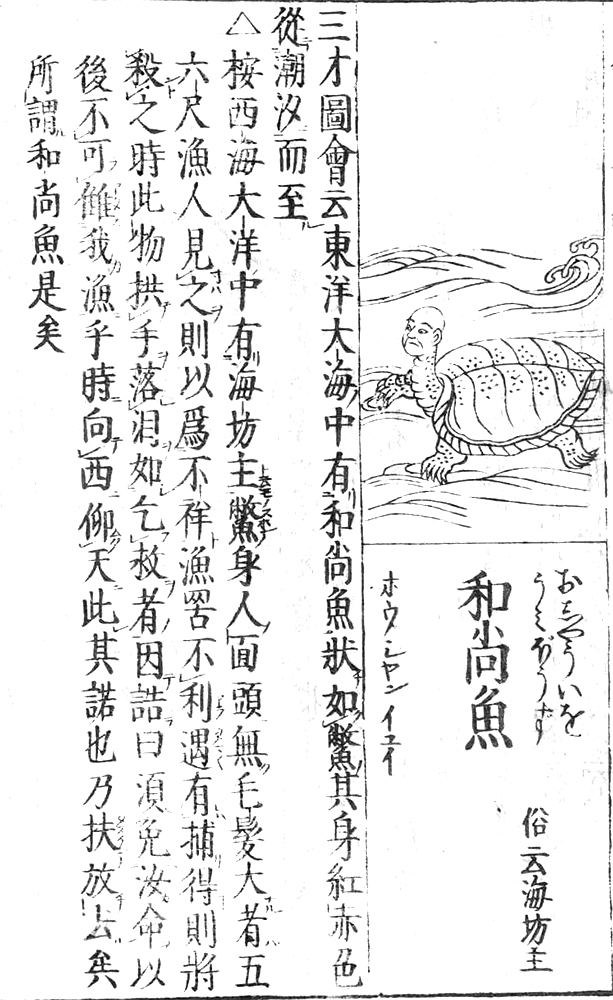 和尚魚
おしやういを
うみぼうず
俗云海坊主
ホウシヤンイユイ
三才圖會云東洋大海中有和尚魚狀如鱉其身紅赤色
從潮汐而至
△桉西海大洋中有海坊主鱉身人面頭無毛髮大者五
六尺漁人見之則以爲不祥漁罟不利遇有捕得則將
殺之時此物拱手落泪如乞救者因誥曰須免汝命以
後不可讎我漁乎時向西仰天此其諾也乃扶放去矣
所謂和尚魚是矣